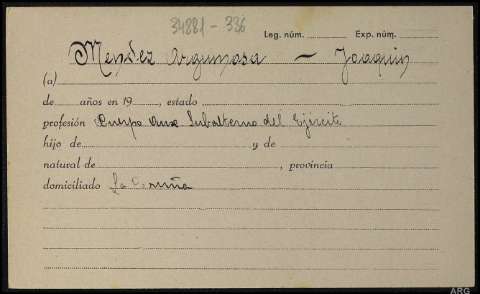 34881-336
Leg. núm. Exp. núm.
Mendez Argumosa — Joaquin
(a)
de años en 19 , estado
profesión Cuerpo Aux Subalterno del Ejército
hijo de y de
natural de , provincia
domiciliado La Coruña
ARG